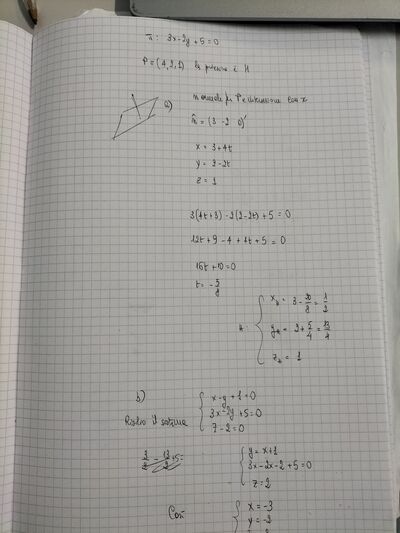 π: 3x-2y+5=0
P=(4,2,1) la proiez è H
a) normale per P e intersezione con π
n̂=(3 -2 0)'
x = 3+4t
y = 2-2t
z = 1
3(4t+3)-2(2-2t)+5=0
12t+9-4+4t+5=0
16t+10=0
t=-5/8
H: { x_H = 3-20/8 = 1/2
y_H = 2+5/4 = 13/4
z_H = 1
b)
{ x-y+1=0
Risolvo il sistema 3x-2y+5=0
z-2=0
{ y=x+1
3x-2x-2+5=0
z=2
Così { x=-3
y=-2